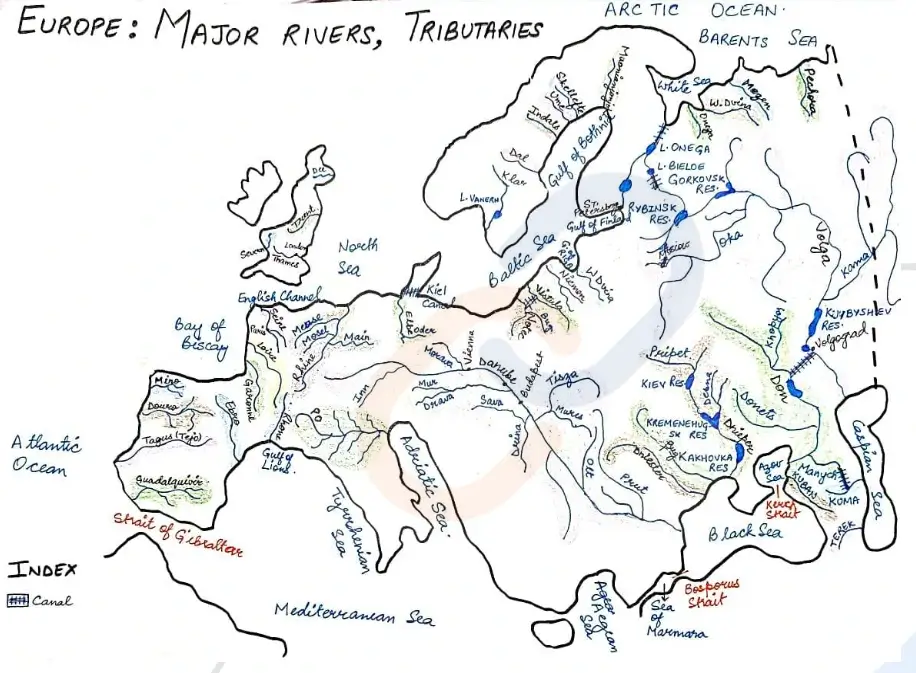 EUROPE: MAJOR RIVERS, TRIBUTARIES
ARCTIC OCEAN.
BARENTS SEA
White Sea
Mezen
Pechora
W. Dvina
Onega
Skellefte
Ume
Indals
Dal
Klar
L. VANERN
Gulf of Bothnia
L. ONEGA
L. BIELOE
GORKOVSK RES.
RYBINSK RES.
ST. Petersburg
Gulf of Finland
Baltic Sea
G. of Riga
W. Dvina
Nieman
Vistula
Bug
Oka
Volga
Kama
KUIBYSHEV RES.
Volgograd
Khoper
Don
Donets
Dee
Trent
Severn
London
Thames
North
Sea
English Channel
Kiel
Canal
Elbe
Oder
Bay of
Biscay
Seine
Paris
Loire
Garonne
Meuse
Mosel
Main
Rhine
Rhone
Inn
Morava
Vienna
Danube
Budapest
Tisza
Mur
Drava
Sava
Mures
Drina
Olt
Prut
Dniester
Bug
Pripet
KIEV RES
Desna
Dnieper
KREMENEHUG
SK RES
KAKHOVKA
RES
Azov
Sea
Manych
KUBAN
KUMA
TEREK
Kerch
Strait
Caspian Sea
Black Sea
Mino
Douro
Tagus (Tejo)
Guadalquivir
Ebro
Po
Gulf of
Lions.
Atlantic
Ocean
Strait of Gibraltar
Tyrrhenian
Sea
Adriatic Sea.
Mediterranean Sea
Aegean
Sea
Bosporus
Strait
Sea
of
Marmara
INDEX
Canal